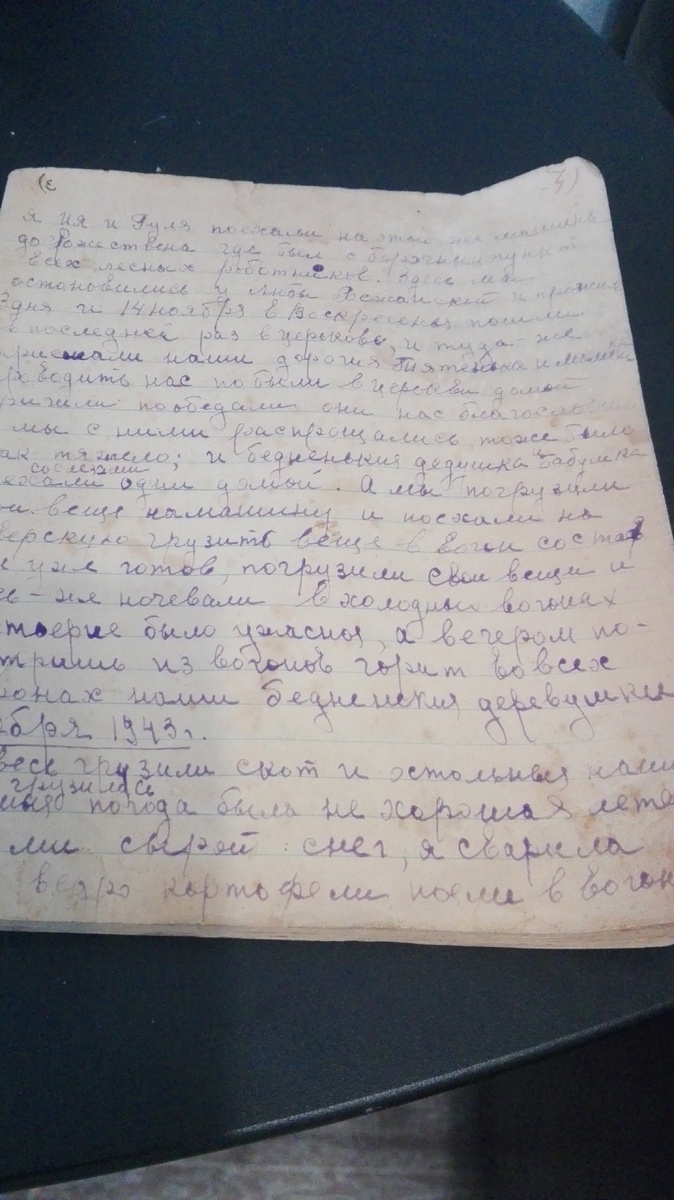 3)
я ия и Гуля поехали на этой же машины
до Рожествена где был сборачный пункт
всех лесных работников. Здесь мы
остановились у Любы и прожили
3дня и 14 ноября в Воскресенья пошли
в последней раз в церьковь, и туда-же
приехали наши дорогия Тятенька и мамень
проводить нас побыли в церькви домой
пообедали они нас благословили
мы с ними распрощались тоже было
так тяжело; и бедненския дедушка бабушка
со слезами
ехали одни домой. А мы погрузили
веще намашину и поехали на
верскую грузить веще в Вогон состав
уже готов, погрузили свои вещи и
сь-же ночевали в холодных вогонах
было ужасноя, а вечером по-
тришь из вогонов горит во всех
ронах наши бедненския деревушки
ября 1943г.
весь грузили скот и остольныя наши
грузились
погода была не хорошая лете
ми сырой снег, я сварила
ведро картофели поели в вогон